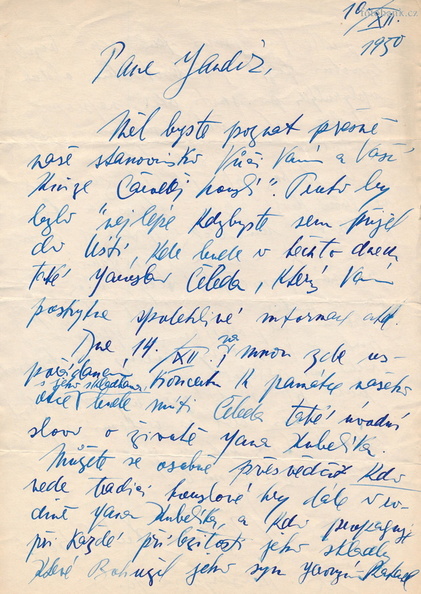 10
XII.
1950
Pane Jandíž,
Měl byste poznat přesně
naše stanovisko vůči Vám a Vaší
knize "Čarněký houslí". Proto by
bylo "nejlépe kdybyste sem přijel
do Ústí, kde bude v těchto dnech
také Jaroslav Čeleda, který Vám
poskytne spolehlivé informace atd.
Dne 14. XII. na mnou zde us-
pořádaném,
s jeho skladbami
Koncertu k památce našeho
otce bude míti Čeleda také úvodní
slovo o životě Jana Kubelíka.
Můžete se osobně přesvědčit kdo
vede tradici houslové hry dále v ro-
dině Jana Kubelíka, a kdo propaguje
při každé příležitosti jeho skladby
které Bohužel jeho syn